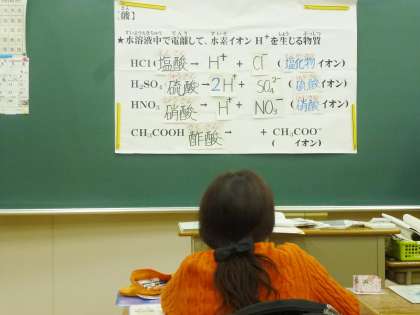 【酸】
★水溶液中で電離して、水素イオンH⁺を生じる物質
HCl (塩酸 → H⁺ + Cl⁻ (塩化物イオン)
H₂SO₄ 硫酸 → 2H⁺ + SO₄²⁻ (硫酸イオン)
HNO₃ 硝酸 → H⁺ + NO₃⁻ (硝酸イオン)
CH₃COOH 酢酸 → + CH₃COO⁻
( イオン)